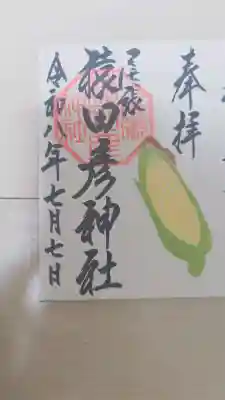 奉拝
尾張
猿田彦神社
令和八年七月七日